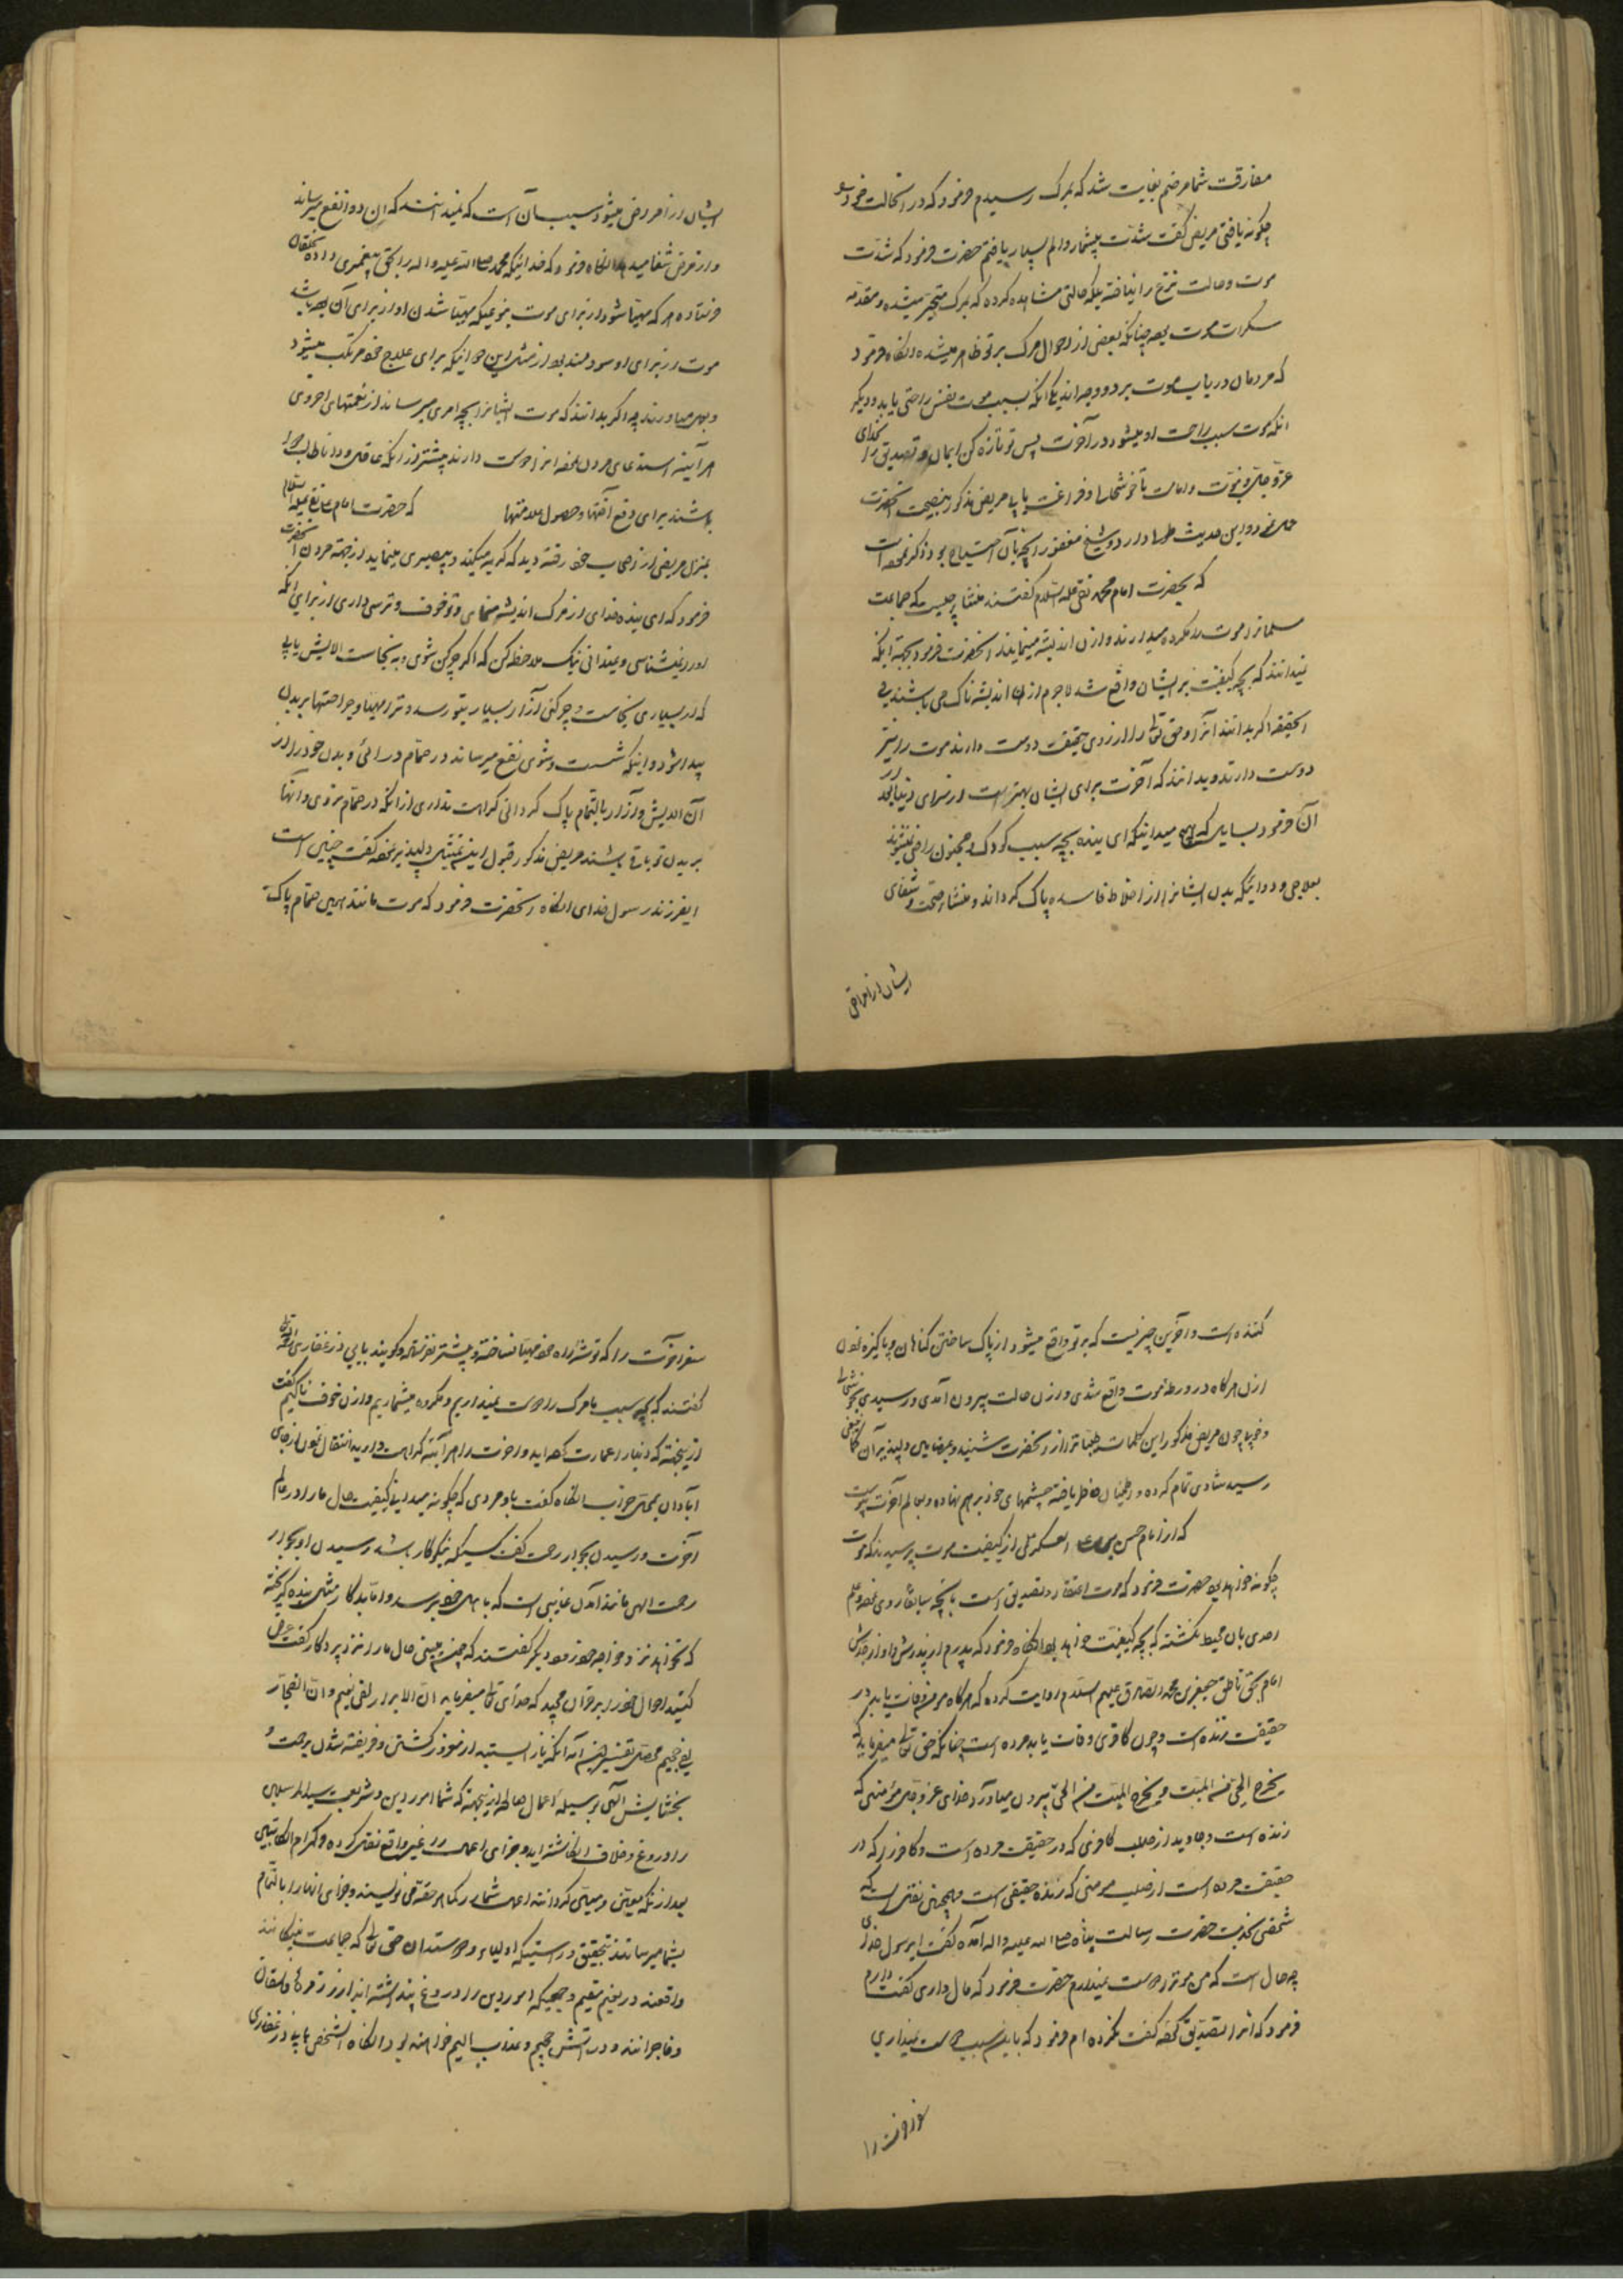 مفارقت شما مرضم بغایت شد که بمرک رسیدم فرمود که در انحالت خود را
چکونه یافتی مریض کفت شدت بیشمار و الم بسیار یافتم حضرت فرمود که شدت
موت و حالت نزع را نیافته بلکه حالتی مشاهده کرده که بمرک منجر میشده و مقدمه
سکرات موت بوده چنانکه بعضی از احوال مرک بر تو ظاهر میشده انکاه فرمود
که مردمان در باب موت بر دو وجه اند یکی انکه بسبب موت نفس راحتی یابد و دیکر
انکه موت سبب راحت او میشود در آخرت پس تو تازه کن ایمان و تصدیق را بخدای
عز و جل و نبوت و امامت تا خوشحال و فراغت یابی مریض مذکور بنصیحت انحضرت
عمل نمود و این حدیث طول دارد و شیخ مغفور انچه بان احتیاج بود ذکر نموده است
که بحضرت امام محمد تقی علیه السلام کفتند منشا چیست که جماعت
مسلمانان موت را مکروه میدارند و ازان اندیشه مینمایند انحضرت فرمود بجهة انکه
نمیدانند که بچه کیفیت بر ایشان واقع شد لاجرم ازان اندیشه ناک می باشند فی
الحقیقه اکر بدانند انرا و حق تعالی را از روی حقیقت دوست دارند موت را نیز
دوست دارند و بدانند که آخرت برای ایشان بهتر است از سرای دنیا بعد از
آن فرمود بسایل که هیچ میدانیکه ای بنده بچه سبب کودک و مجنون راضی نمیشوند
بعلاجی و دوائیکه بدن ایشانرا از اخلاط فاسده پاک کرداند و منشاء صحت و شفای
ایشان از امراض
ایشان از امراض میشود سبب آن است که نمیدانند که ان دوا نفع میرساند
و از مرض شفا میدهد انکاه فرمود که خدائیکه محمد صلی الله علیه واله را بحق پیغمبری داده بخلقان
فرستاده هر که مهیا شود از برای موت بنوعیکه مهیا شدن او از برای آن بهتر باشد
موت از برای او سودمند بود از مثل این دوائیکه برای علاج خود مرتکب میشود
و بهم میاورند چه اکر بدانند که موت ایشانرا بچه امری میرساند از نعمتهای اخروی
هر آینه استدعای مردن نموده انرا دوست دارند بیشتر از انکه عاقل و دانا طالب دوا
باشند برای دفع آفتها و حصول سلامتها که حضرت امام علی نقی علیه السلام
بمنزل مریضی از اصحاب خود رفته دید که کریه میکند و بیصبری مینماید از جهة مردن انحضرت
فرمود که ای بنده خدای از مرک اندیشه مینمائی و تو خوف و ترس داری از برای انکه
او را نمیشناسی و نمیدانی نیک ملاحظه کن که اکر چرکن شوی و به نجاست الایش یابی
که از بسیاری نجاست و چرکنی آزار بسیار بتو رسد و قرحها و جراحتها بر بدن
پیدا شود و اینکه شست و شوی نفع میرساند در حمام درائی و بدن خود را از
آن الایش و آزار بالتمام پاک کردانی کراهت نداری از انکه در حمام نروی و انها
بر بدن تو باقی باشند مریض مذکور قبول این نصیحت دلپذیر نموده کفت چنین است
ایفرزند رسول خدای انکاه انحضرت فرمود که موت مانند همین حمام پاک
کننده است و اخرین چیزیست که بر تو واقع میشود از پاک ساختن کناهان و پاکیزه نمودن
ازان هرکاه در ورطه موت واقع شدی و ازان حالت بیرون آمدی و رسیدی بخوشحالی
و خوبیها چون مریض مذکور این کلمات طیباترا از انحضرت شنید و بمضامین دلپذیر آن
رسید شادی تمام کرده و اطمینان خاطر یافته چشمهای خود بر هم نهاده و بعالم آخرت پیوست
که از امام حسن بن علی العسکری از کیفیت موت پرسیدند که موت
چکونه خواهد بود حضرت فرمود که موت اعتقاد و تصدیق است بانچه سابقا روی نموده و علم
احدی بان محیط نکشته که بچه کیفیت خواهد بود انکاه فرمود که پدرم از پدرش و او از جدش
امام بحق ناطق جعفر بن محمد الصادق علیهم السلام روایت کرده که هرکاه مومنی وفات یابد در
حقیقت زنده است و چون کافری وفات یابد مرده است چنانکه حق تعالی میفرماید که
یخرج الحی من المیت و یخرج المیت من الحی بیرون میاورد خدای عز و جل مؤمنی که
زنده است و جاوید از صلب کافری که در حقیقت مرده است و کافر را که در
حقیقت مرده است از صلب مومنی که زنده حقیقی است و همچنین نقل است که
شخصی بخدمت حضرت رسالت پناه صلی الله علیه واله آمده کفت ایرسول خدای
چه حال است که من موترا دوست نمیدارم حضرت فرمود که مال داری کفت دارم
فرمود که انرا تصدق نموده کفت نکرده ام فرمود که باین سبب دوست نمیداری
سفر اخرت را
سفر اخرت را که توشه راه خود مهیا نساخته و پیشتر نفرستاده و کویند بابی ذر غفاری
کفتند که بچه سبب ما مرک را دوست نمیداریم و مکروه میشماریم و ازان خوف ناکیم کفت
از نجهة که دنیا را عمارت کرده اید و اخرت را هر آینه کراهت دارید انتقال نمودن از جای
آبادان بمحل خراب انکاه کفت باو مردی که چکونه میدانی کیفیت حال ما را در عالم
اخرت و رسیدن بجوار رحمت کفت کسیکه نیکوکار باشد رسیدن او بجوار
رحمت الهی مانند آمدن غایبی است که باهل خود رسد و اما بدکار مثل بنده کریخته
که بخواهد نزد خواجه خود رود دیکر کفتند که چه می بینی حال ما را نزد پروردکار کفت عرض
کنید احوال خود را بر قرآن مجید که خدای تعالی میفرماید ان الابرار لفی نعیم و ان الفجار
لفی جحیم محصل تفسیر این آیه انکه باز ایستید از مغرور کشتن و فریفته شدن برحمت و
بخشایش الهی بوسیله اعمال صالحه از نجهة که شما امور دین و شریعت سید المرسلین
را دروغ و خلاف انکاشته اید و جزای اعمال را غیر واقع تصور کرده و کرام الکاتبین
بعد از انکه معین و مهیا کردانند اعمال شما را یکماهو حقه می نویسند و جزای انها را بالتمام
بشما میرسانند بتحقیق و راستیکه اولیاء و دوستدان حق تعالی که جماعت نیکانند
واقعند در نعیم مقیم و جمعیکه امور دین را دروغ پنداشته اند از زمره فاسقان
و فاجرانند و در آتش جحیم و عذاب الیم خواهند بود انکاه انشخص بابی ذر غفاری